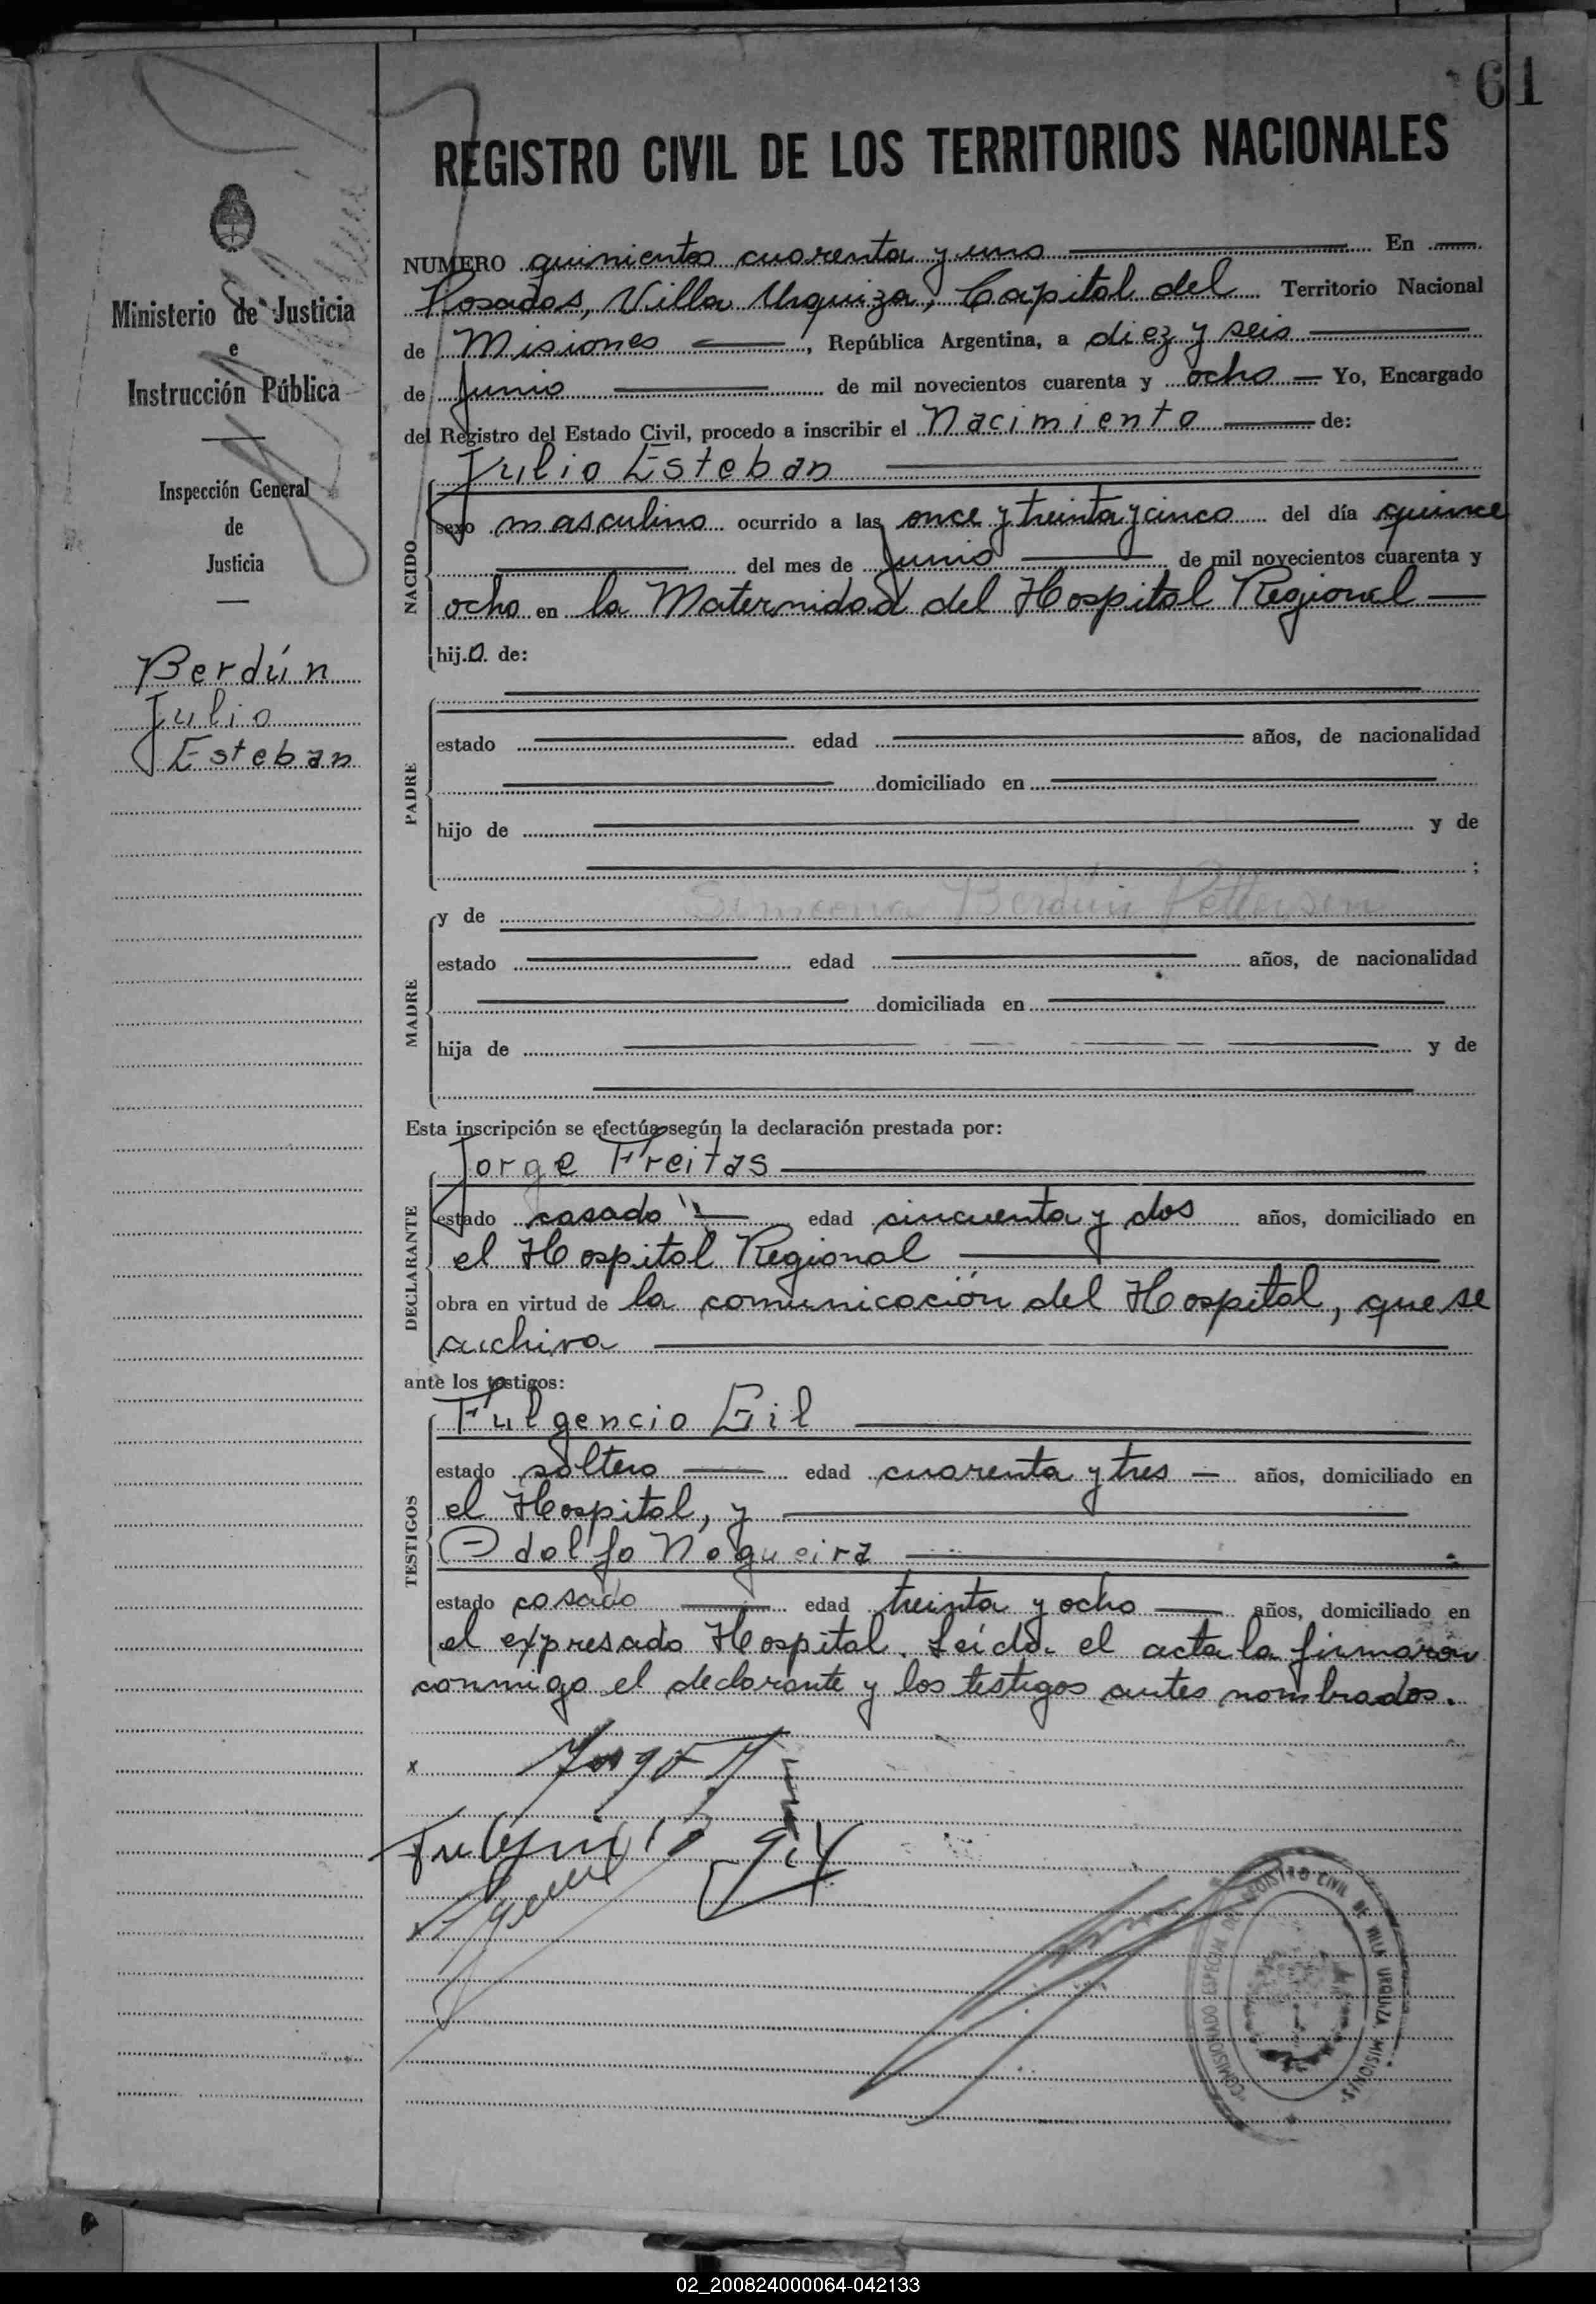 61
REGISTRO CIVIL DE LOS TERRITORIOS NACIONALES
Ministerio de Justicia
e
Instrucción Pública
Inspección General
de
Justicia
Berdún
Julio
Esteban
NUMERO quinientos cuarenta y uno En
Posadas, Villa Urquiza, Capital del Territorio Nacional
de Misiones, República Argentina, a diez y seis
de Junio de mil novecientos cuarenta y ocho Yo, Encargado
del Registro del Estado Civil, procedo a inscribir el Nacimiento de:
Julio Esteban
NACIDO
sexo masculino ocurrido a las once y treinta y cinco del día quince
del mes de Junio de mil novecientos cuarenta y
ocho en la Maternidad del Hospital Regional
hijo de:
PADRE
estado edad años, de nacionalidad
domiciliado en
hijo de y de
;
MADRE
y de Simeona Berdún
estado edad años, de nacionalidad
domiciliada en
hija de y de
Esta inscripción se efectúa según la declaración prestada por:
DECLARANTE
Jorge Freitas
estado casado edad cincuenta y dos años, domiciliado en
el Hospital Regional
obra en virtud de la comunicación del Hospital, que se
archiva
ante los testigos:
TESTIGOS
Fulgencio Gil
estado soltero edad cuarenta y tres años, domiciliado en
el Hospital, y
Adolfo Nogueira
estado casado edad treinta y ocho años, domiciliado en
el expresado Hospital. Leída el acta la firmaron
conmigo el declarante y los testigos antes nombrados.
x Jorge
Fulgencio Gil
COMISIONADO ESPECIAL DEL REGISTRO CIVIL DE VILLA URQUIZA MISIONES
02_200824000064-042133